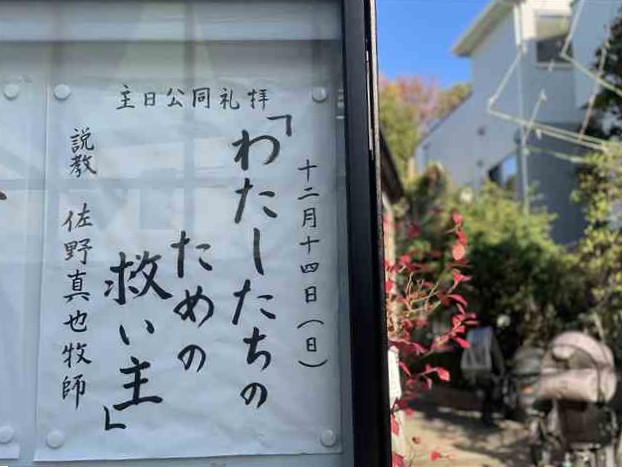 主日公同礼拝
十二月十四日(日)
「わたしたちの
ための
救い主」
説教 佐野真也牧師